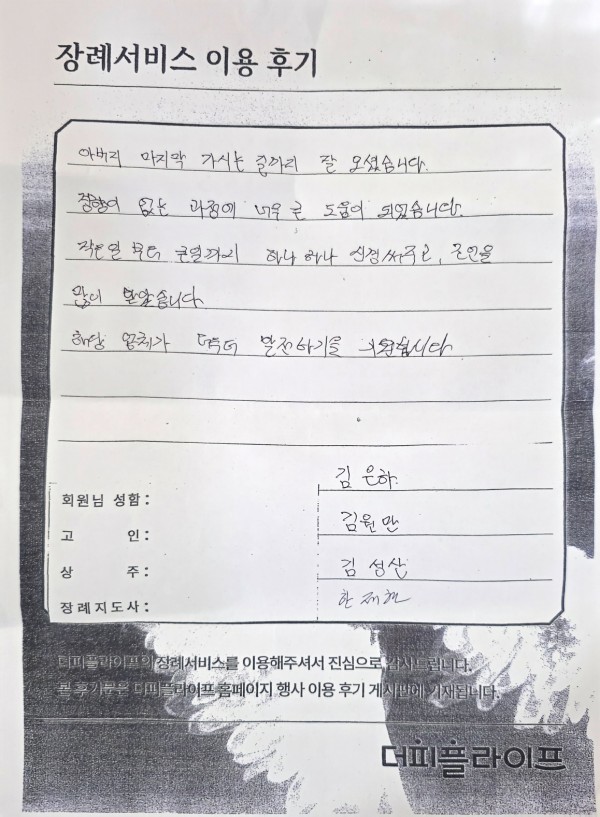 장례서비스 이용 후기
아버리 마지막 가시는 길까지 잘 모셨습니다.
경황이 없는 과정에 너무 큰 도움이 되었습니다.
작은일 부터 큰일까지 하나 하나 신경써주고, 조언을
많이 받았습니다
해당 업체가 더욱더 발전하기를 기원합니다
회원님 성함: 김은하
고 인: 김원만
상 주: 김성산
장례지도사: 한재현
더피플라이프의 장례서비스를 이용해주셔서 진심으로 감사드립니다.
본 후기문은 더피플라이프 홈페이지 행사 이용 후기 게시판에 기재됩니다.
더피플라이프